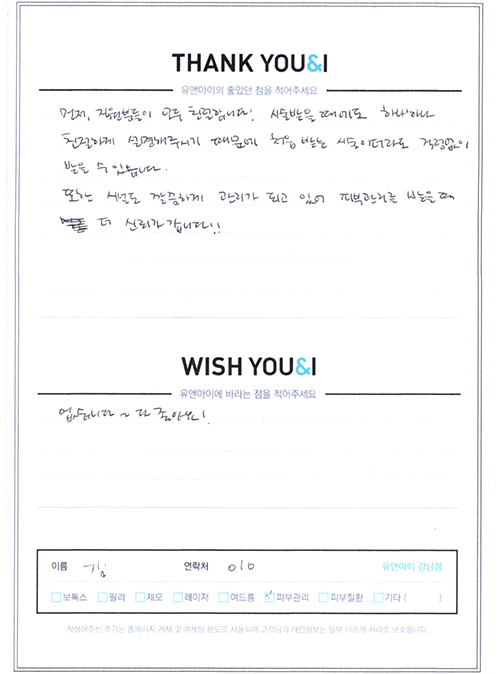 THANK YOU&I
유앤아이의 좋았던 점을 적어주세요
먼저, 직원분들이 모두 친절합니다! 시술받을 때에도 하나하나
친절하게 설명해주시기 때문에 처음 받는 시술이더라도 걱정없이
받을 수 있습니다.
또한 시설도 깔끔하게 관리가 되고 있어 피부관리를 받을 때
더 신뢰가 갑니다!!
WISH YOU&I
유앤아이에 바라는 점을 적어주세요
없습니다~ 다 좋아요!
이름 김 연락처 010 유앤아이 강남점
보톡스 필러 제모 레이저 여드름 피부관리 피부질환 기타 ( )
작성해주신 후기는 홈페이지 게재 및 마케팅 용도로 사용되며 고객님의 개인정보는 일부 비공개 처리로 보호됩니다.